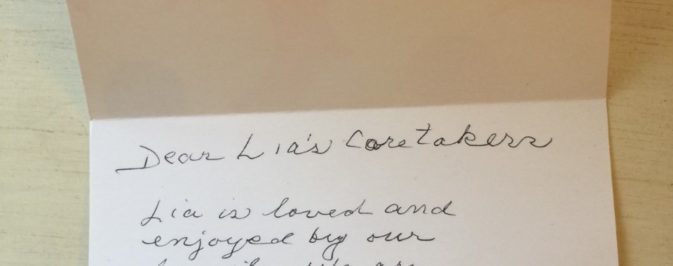 Dear Lia's Caretakers
Lia is loved and
enjoyed by our